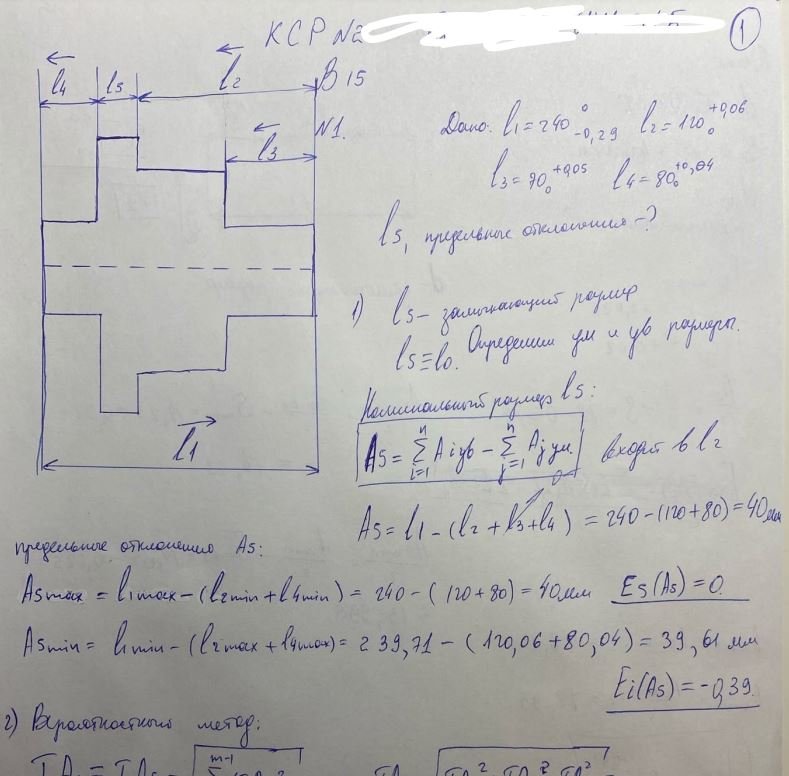 КСР №2
1
l4 l5 l2 В 15
l3 N1.
l1
Дано: l1=240 0 -0,29 l2=120 +0,06 0
l3=90 +0,05 0 l4=80 +0,04 0
l5, предельные отклонения -?
1) l5 - замыкающий размер
l5≡l0. Определим ум и ув размеры.
Номинальный размер l5:
A5 = n Σ i=1 Ai ув - n Σ j=1 Aj ум. входит в l2
A5 = l1 - (l2 + l3 + l4) = 240 - (120+80) = 40мм
0
предельные отклонения A5:
A5max = l1max - (l2min + l4min) = 240 - (120+80) = 40мм Es(A5) = 0.
A5min = l1min - (l2max + l4max) = 239,71 - (120,06+80,04) = 39,61 мм
Ei(A5) = -0,39.
2) Вероятностного метод: